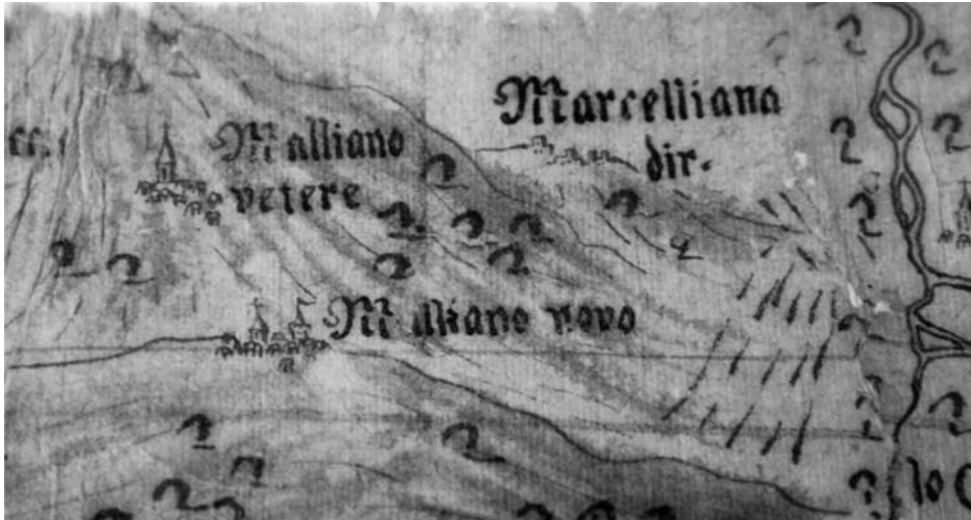 Marcelliana
dir.
Malliano
vetere
Malliano novo
lo